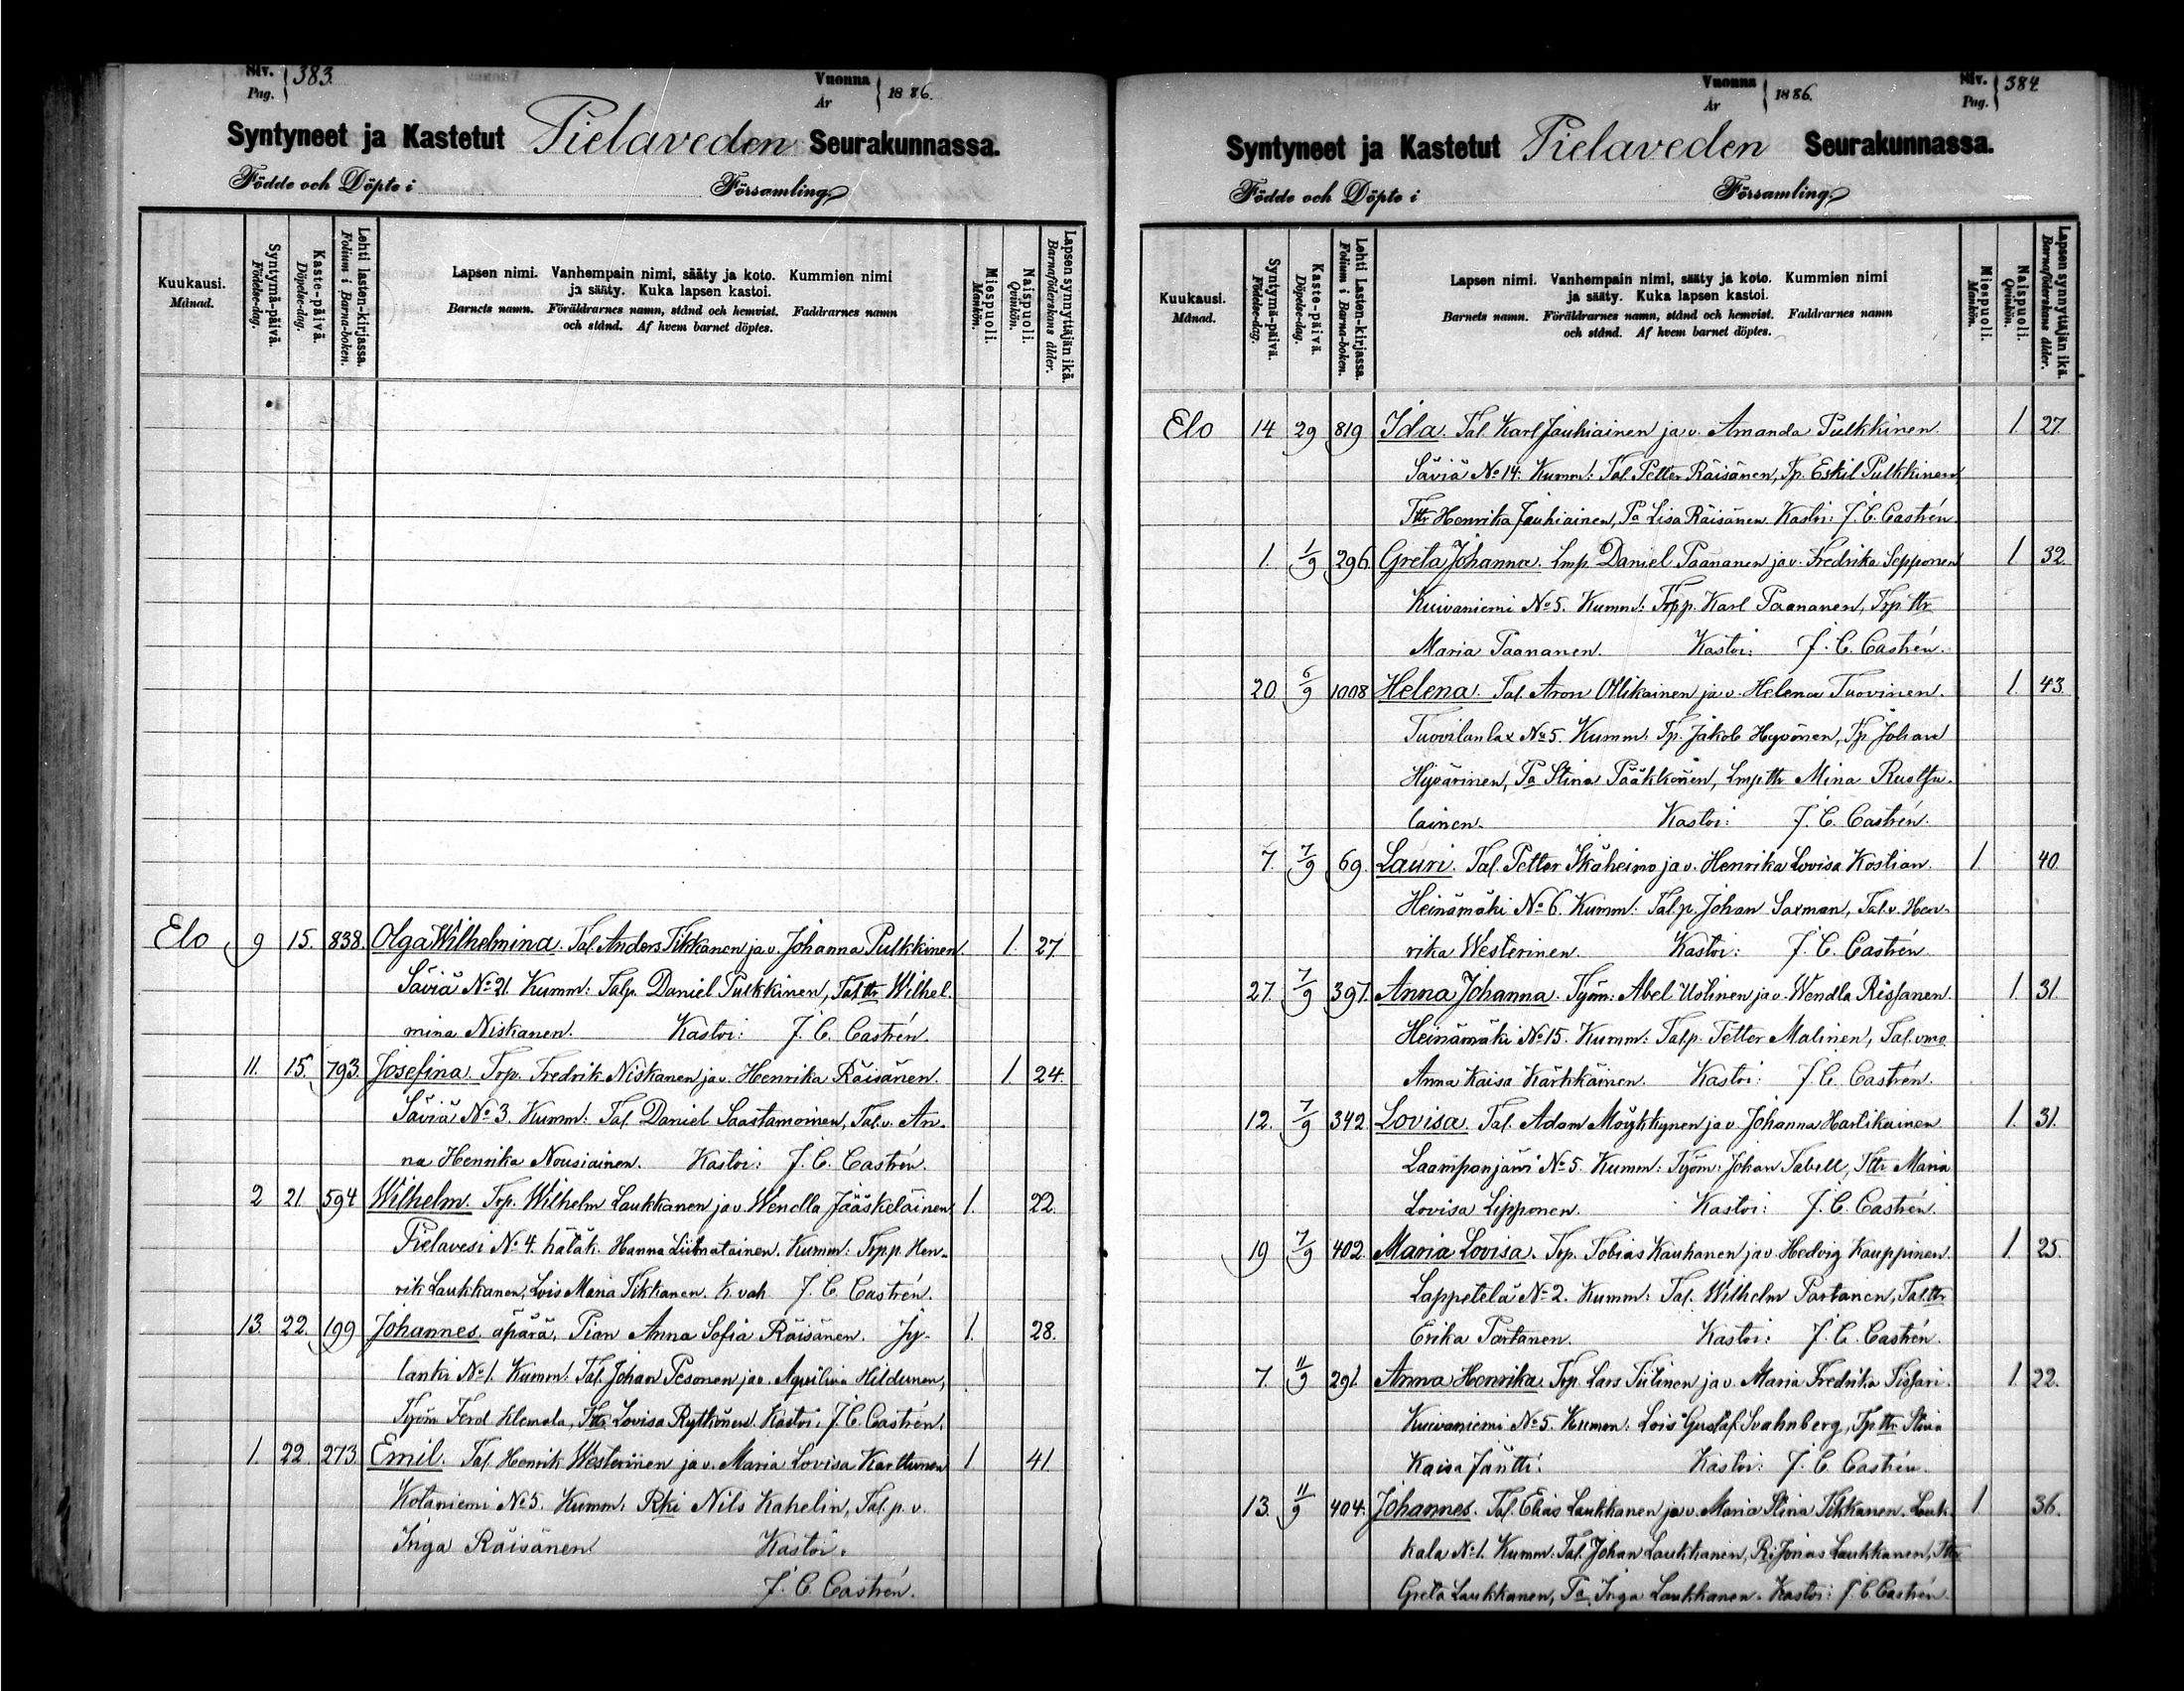 Siv. Pag. 383.
Vuonna År 1886.
Syntyneet ja Kastetut Pielaveden Seurakunnassa.
Födde och Döpte i Församling.
Kuukausi. Månad.
Syntymä-päivä. Födelse-dag.
Kaste-päivä. Döpelse-dag.
Lehti lasten-kirjassa. Folium i Barna-boken.
Lapsen nimi. Vanhempain nimi, sääty ja koto. Kummien nimi
ja sääty. Kuka lapsen kastoi.
Barnets namn. Föräldrarnes namn, stånd och hemvist. Faddrarnes namn
och stånd. Af hvem barnet döptes.
Miespuoli. Mankön.
Naispuoli. Qvinkön.
Lapsen synnyttäjän ikä. Barnaföderskans ålder.
Elo 9 15. 838. Olga Wilhelmina. Tal. Anders Tikkanen ja v. Johanna Pulkkinen. 1. 27.
Säviä No 21. Kumm: Talp. Daniel Pulkkinen, Tal.ttr Wilhel-
mina Niskanen. Kastoi: J. C. Castrén.
11. 15. 793. Josefina. Trp. Fredrik Niskanen ja v. Henrika Räisänen. 1. 24.
Säviä No 3. Kumm: Tal. Daniel Saastamoinen, Tal.v. An-
na Henrika Nousiainen. Kastoi: J. C. Castrén.
2 21. 594 Wilhelm. Trp. Wilhelm Laukkanen ja v. Wendla Jääskeläinen 1. 22.
Pielavesi No 4. hätäk. Hanna Liimatainen. Kumm: Trpp. Hen-
rik Laukkanen, Lois Maria Tikkanen. K. vah. J. C. Castrén.
13. 22. 199 Johannes. äpärä, Pian Anna Sofia Räisänen. Jy- 1. 28.
lanki No 1. Kumm: Tal. Johan Pesonen ja v. Aqvilina Hildunen,
Työm Ferd Klemola, Ttr Lovisa Rytkönen. Kastoi: J. C. Castrén.
1. 22. 273. Emil. Tal. Henrik Westerinen ja v. Maria Lovisa Karttunen 1. 41.
Kotaniemi No 5. Kumm: Rki Nils Kahelin, Tal. p. v.
Inga Räisänen. Kastoi.
J. C. Castrén.
Siv. Pag. 384
Vuonna År 1886.
Syntyneet ja Kastetut Pielaveden Seurakunnassa.
Födde och Döpte i Församling.
Kuukausi. Månad.
Syntymä-päivä. Födelse-dag.
Kaste-päivä. Döpelse-dag.
Lehti Lasten-kirjassa. Folium i Barna-boken.
Lapsen nimi. Vanhempain nimi, sääty ja koto. Kummien nimi
ja sääty. Kuka lapsen kastoi.
Barnets namn. Föräldrarnes namn, stånd och hemvist. Faddrarnes namn
och stånd. Af hvem barnet döptes.
Miespuoli. Mankön.
Naispuoli. Qvinkön.
Lapsen synnyttäjän ikä. Barnaföderskans ålder.
Elo 14 29 819 Ida. Tal. Karl Jauhiainen ja v. Amanda Pulkkinen. 1. 27.
Säviä No 14. Kumm: Tal. Petter Räisänen, Tp. Eskil Pulkkinen,
Ttr Henrika Jauhiainen, Pa Lisa Räisänen. Kastoi: J. C. Castrén.
1. 1/9 296. Greta Johanna. Lmp. Daniel Paananen ja v. Fredrika Sepponen 1 32.
Kuivaniemi No 5. Kumm: Trpp. Karl Paananen, Trp.ttr
Maria Paananen. Kastoi: J. C. Castrén.
20. 6/9 1008 Helena. Tal. Aron Ollikainen ja v. Helena Tuovinen. 1. 43.
Tuovilanlax No 5. Kumm: Tp. Jakob Hyvönen, Tp. Johan
Hyvärinen, Pa Stina Pääkkönen, Lmp.ttr Mina Ruotsa-
lainen. Kastoi: J. C. Castrén.
7. 7/9 69. Lauri. Tal. Petter Ikäheimo ja v. Henrika Lovisa Kostian. 1. 40.
Heinämäki No 6. Kumm: Tal.p. Johan Saxman, Tal.v. Hen-
rika Westerinen. Kastoi: J. C. Castrén.
27. 7/9 397. Anna Johanna. Työm: Abel Ustinen ja v. Wendla Rissanen. 1. 31.
Heinämäki No 15. Kumm: Tal.p. Petter Malinen, Tal. vmo
Anna Kaisa Kärkkäinen. Kastoi: J. C. Castrén.
12. 7/9 342. Lovisa. Tal. Adam Möykkynen ja v. Johanna Hartikainen 1. 31.
Laampanjärvi No 5. Kumm: Työm: Johan Tabell, Ttr Maria
Lovisa Lipponen. Kastoi: J. C. Castrén.
19 7/9 402. Maria Lovisa. Trp. Tobias Kauhanen ja v. Hedvig Kauppinen. 1. 25.
Lappetelä No 2. Kumm: Tal. Wilhelm Partanen, Tal.ttr
Erika Partanen. Kastoi: J. C. Castrén.
7. 11/9 291. Anna Henrika. Trp. Lars Tiilinen ja v. Maria Fredrika Tissari. 1. 22.
Kuivaniemi No 5. Kumm: Lois Gustaf Svahnberg, Tp.ttr Stina
Kaisa Jäntti. Kastoi: J. C. Castrén.
13. 11/9 404. Johannes. Tal. Elias Laukkanen ja v. Maria Stina Tikkanen. Lauk- 1. 36.
kala No 1. Kumm: Tal. Johan Laukkanen, Ri Jonas Laukkanen, Ttr
Greta Laukkanen, Pa Inga Laukkanen. Kastoi: J. C. Castrén.